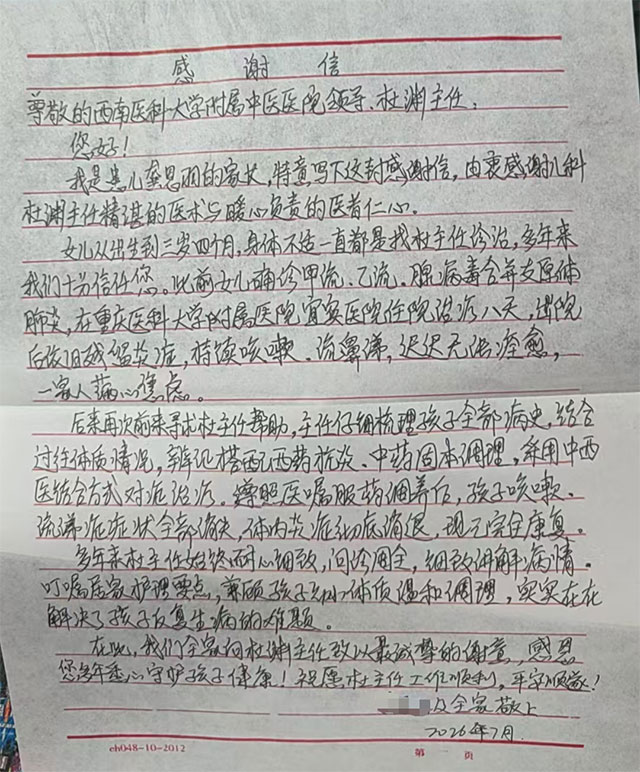 感谢信
尊敬的西南医科大学附属中医医院领导、杜渊主任:
您好!
我是患儿龚思丽的家长,特意写下这封感谢信,由衷感谢儿科
杜渊主任精湛的医术与暖心负责的医者仁心。
女儿从出生到三岁四个月,身体不适一直都是找杜主任诊治,多年来
我们十分信任您。此前女儿确诊甲流、乙流、腺病毒合并支原体
肺炎,在重庆医科大学附属医院宜宾医院住院治疗八天,出院
后依旧残留炎症,持续咳嗽、流鼻涕,迟迟无法痊愈,
一家人满心焦虑。
后来再次前来寻求杜主任帮助,主任仔细梳理孩子全部病史,结合
过往体质情况,辩证搭配西药抗炎、中药固本调理,采用中西
医结合方式对症治疗。遵照医嘱服药调养后,孩子咳嗽、
流涕症症状全部消失,体内炎症彻底消退,现已完全康复。
多年来杜主任始终耐心细致,问诊周全,细致讲解病情。
叮嘱居家护理要点,兼顾孩子幼小体质温和调理,实实在在
解决了孩子反复生病的难题。
在此,我们全家向杜渊主任致以最诚挚的谢意,感恩
您多年悉心守护孩子健康!祝愿杜主任工作顺利,平安顺遂!
及全家敬上
2026年7月.
ch048-10-2012
第 一 页